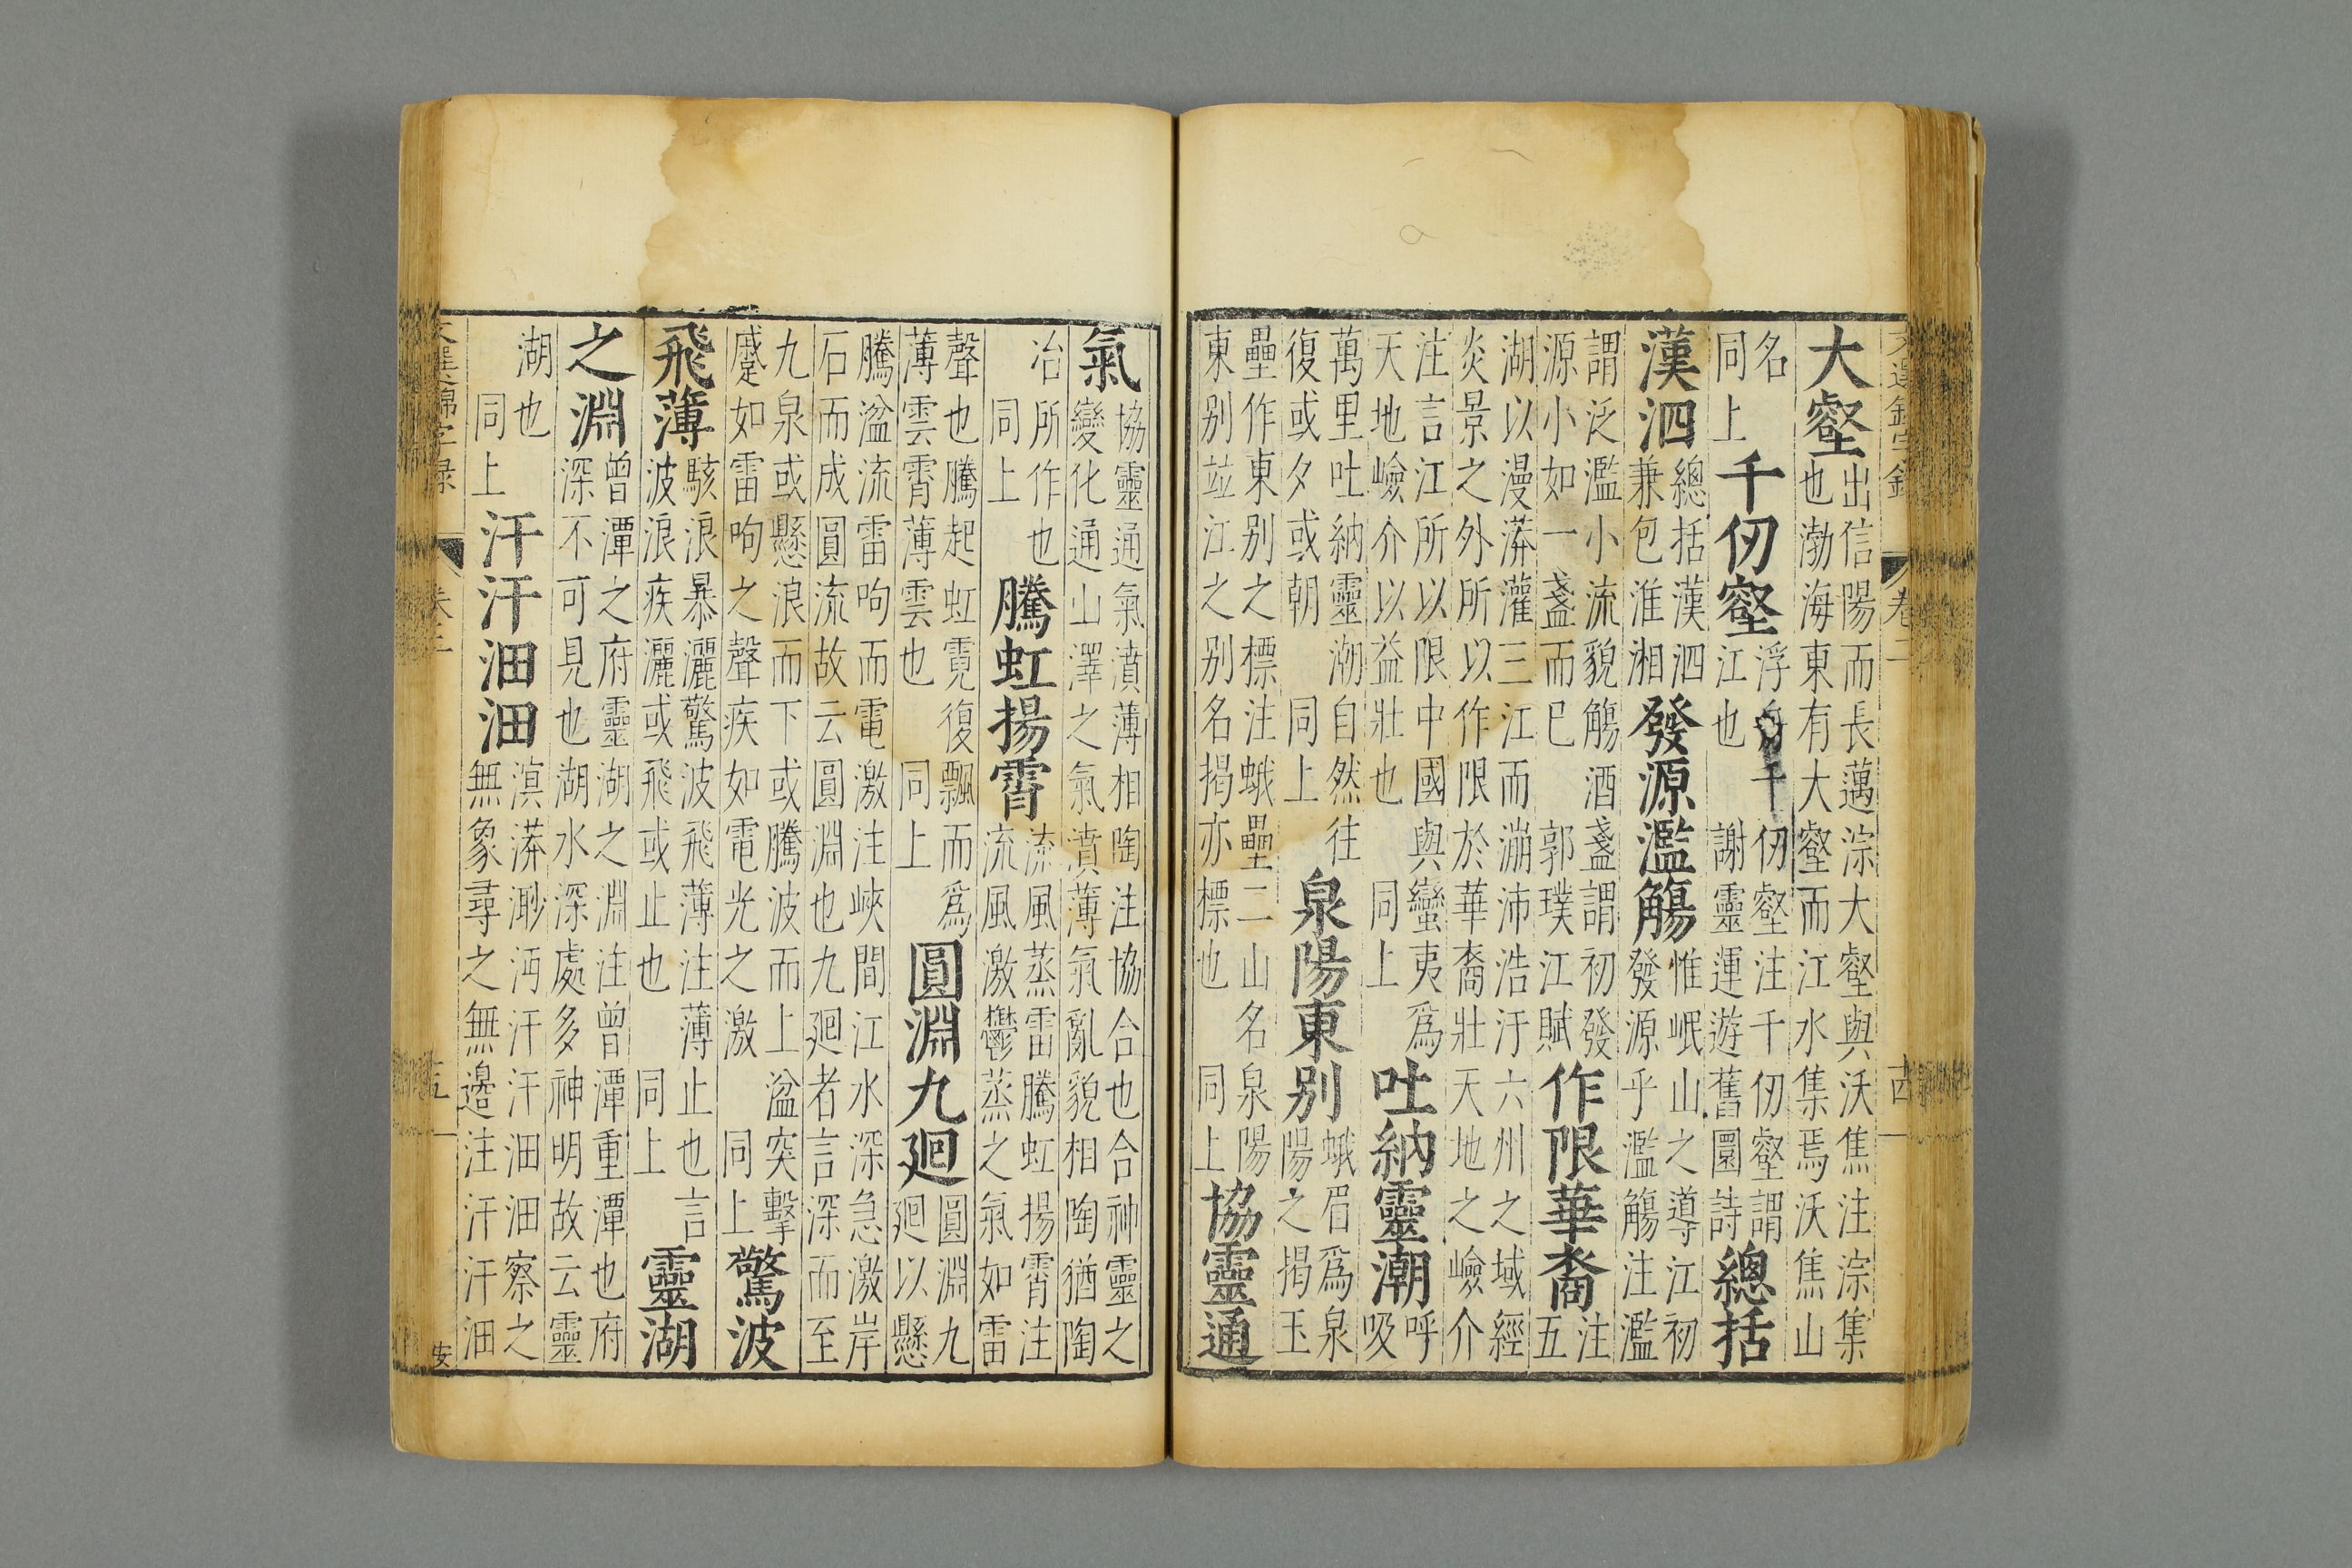 文選錦字錄 卷二
大壑出信陽而長邁淙大壑與沃焦注淙集也渤海東有大壑而江水集焉沃焦山
名同上千仞壑浮舟千仞壑注千仞壑謂江也 謝靈運遊舊園詩總括
漢泗總括漢泗兼包淮湘發源濫觴惟岷山之導江初發源乎濫觴注濫
謂泛濫小流貌觴酒盞謂初發源小如一盞而已 郭璞江賦作限華裔注五
湖以漫漭灌三江而漰沛浩汙六州之域經炎景之外所以作限於華裔壯天地之嶮介
注言江所以限中國與蠻夷爲天地嶮介以益壯也 同上吐納靈潮呼吸
萬里吐納靈潮自然往復或夕或朝 同上泉陽東别蛾眉爲泉陽之揭玉
壘作東别之標注蛾壘二山名泉陽東别並江之别名揭亦標也 同上協靈通
氣協靈通氣濆薄相陶注協合也合神靈之變化通山澤之氣濆薄氣亂貌相陶猶陶
冶所作也同上騰虹揚霄流風蒸雷騰虹揚霄注流風激鬱蒸之氣如雷
聲也騰起虹霓復飄而爲薄雲霄薄雲也 同上圓淵九廻圓淵九廻以懸
騰湓流雷呴而電激注峽間江水深急激岸石而成圓流故云圓淵也九廻者言深而至
九泉或懸浪而下或騰波而上湓突擊蹙如雷呴之聲疾如電光之激 同上驚波
飛薄駭浪暴灑驚波飛薄注薄止也言波浪疾灑或飛或止也 同上靈湖
之淵曾潭之府靈湖之淵注曾潭重潭也府深不可見也湖水深處多神明故云靈
湖也同上汗汗沺沺滇漭渺沔汗汗沺沺察之無象尋之無邊注汗汗沺沺
文選錦字錄 安